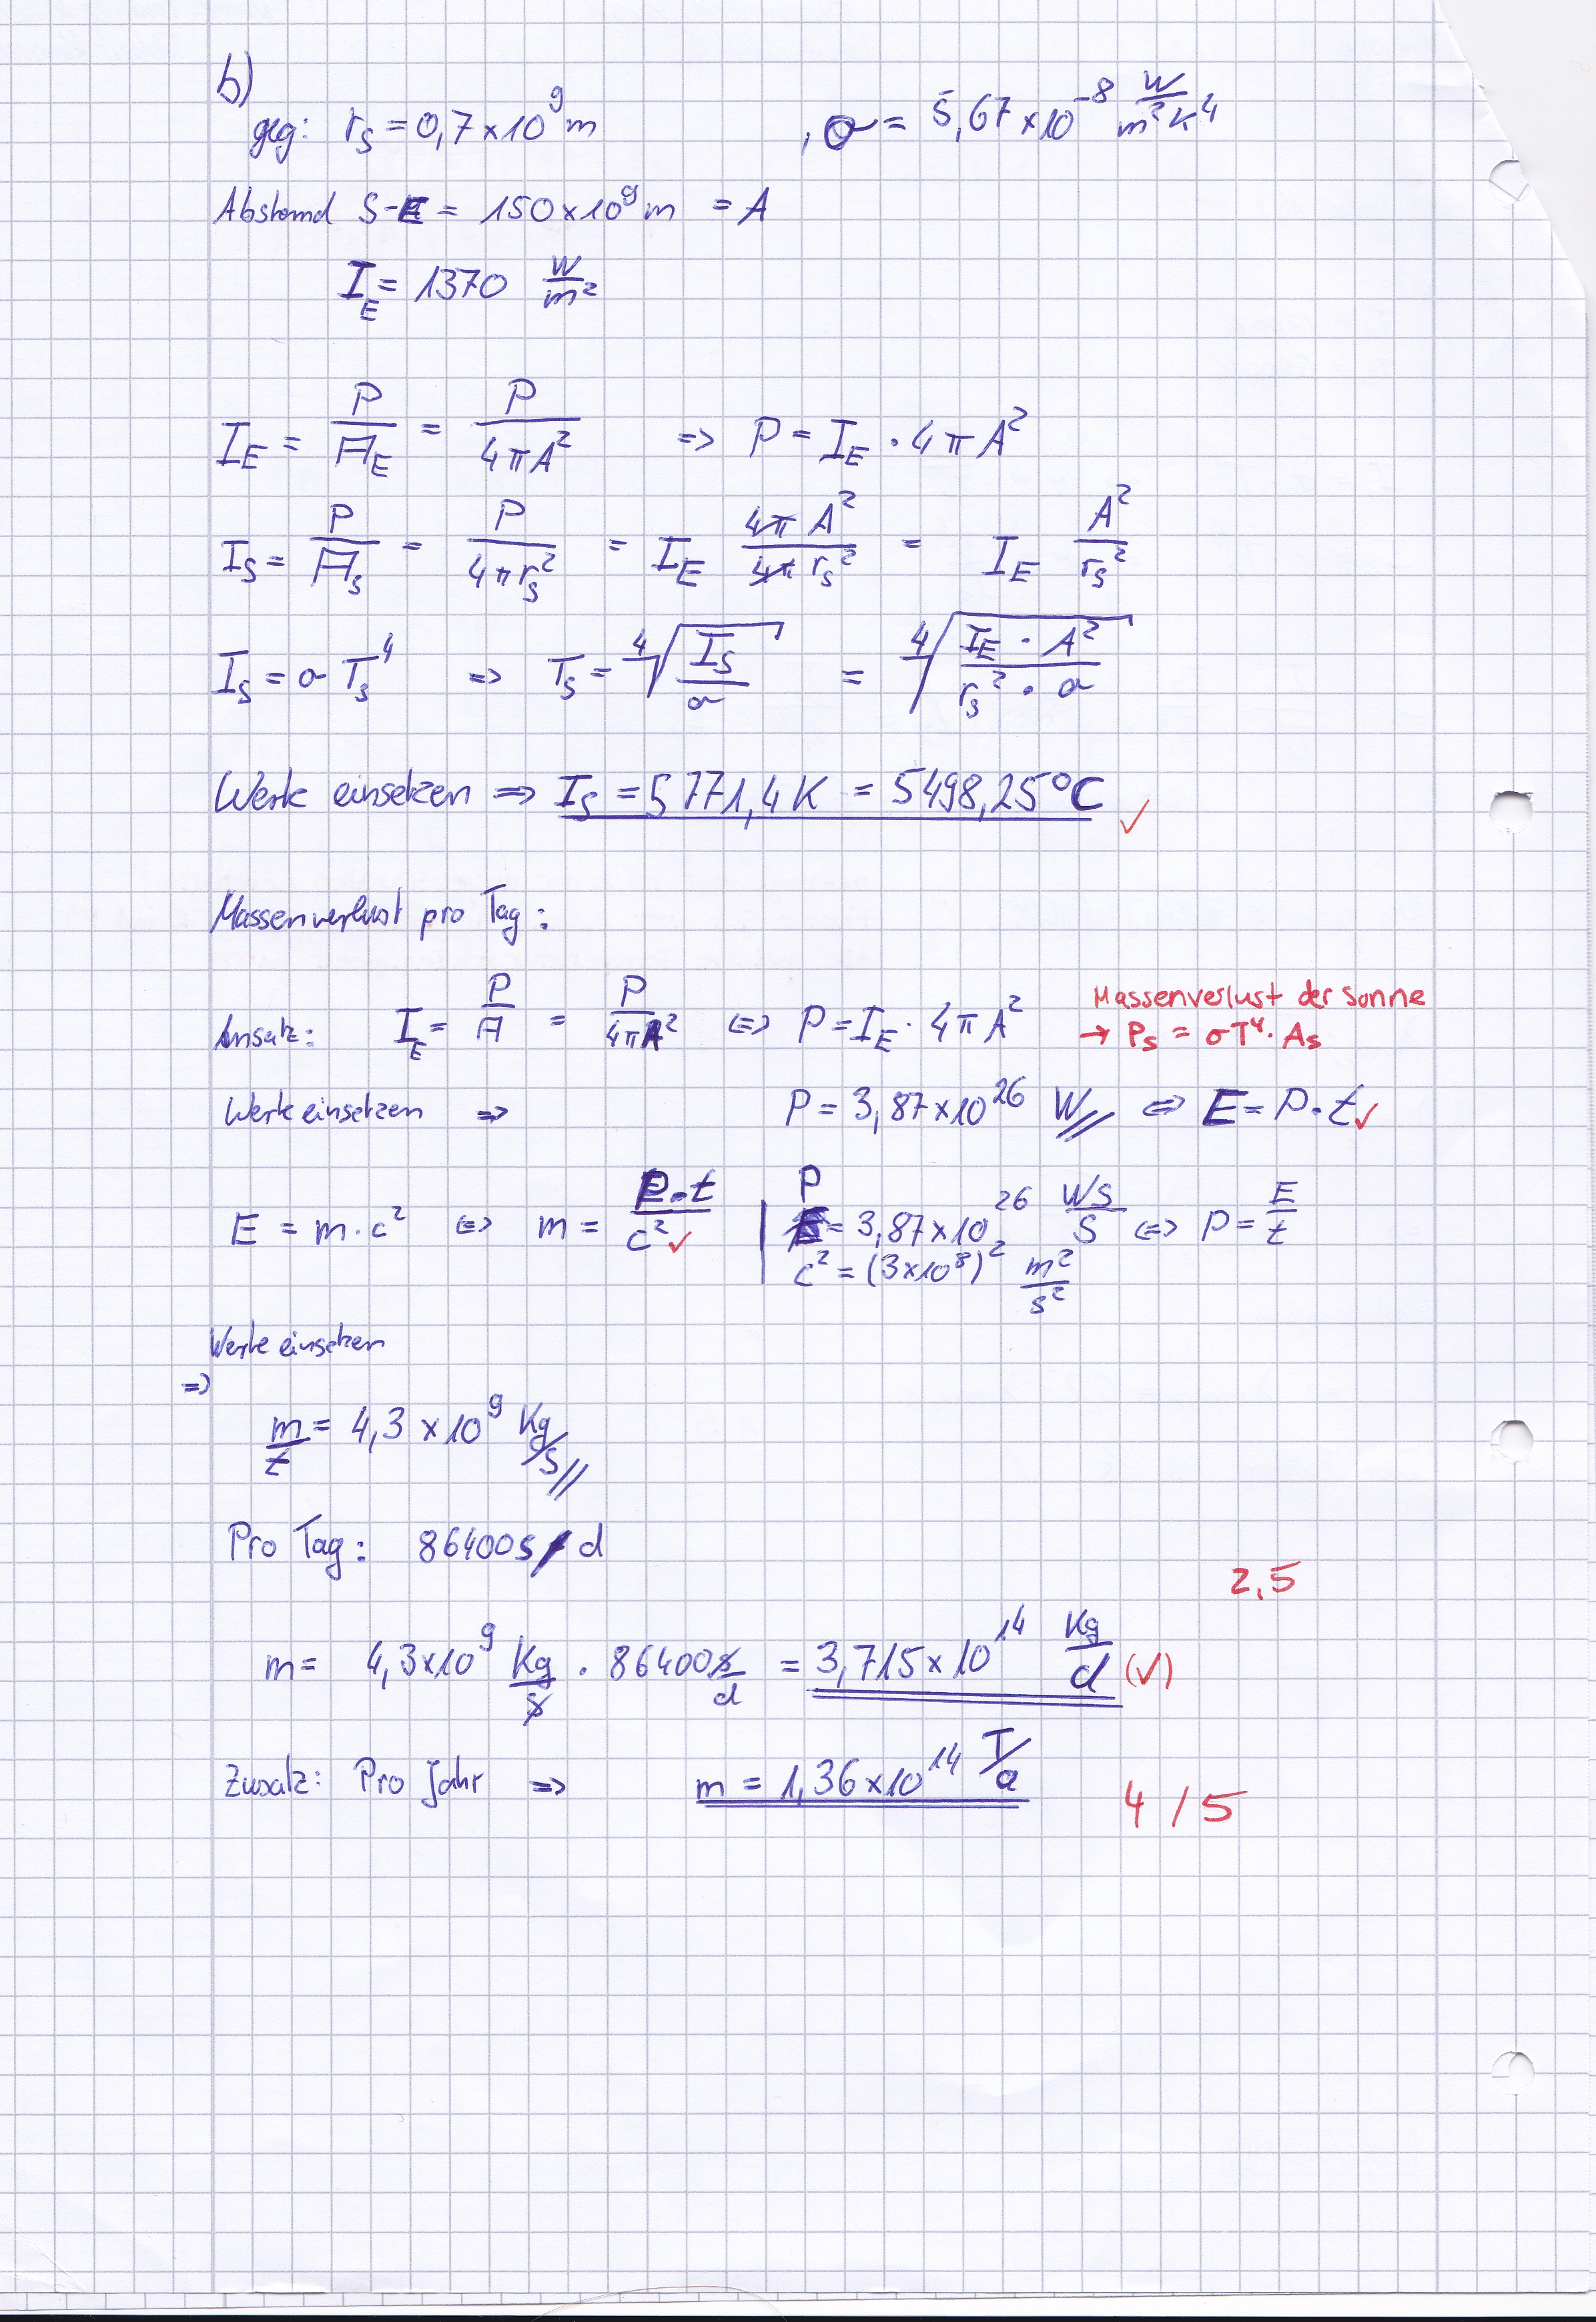 b)
geg: r_S = 0,7×10^9 m , σ = 5,67×10^-8 W/m²K⁴
Abstand S-E = 150×10^9 m = A
I_E = 1370 W/m²
I_E = P/A_E = P/4πA² => P = I_E · 4πA²
I_S = P/A_S = P/4πr_S² = I_E 4πA²/4πr_S² = I_E A²/r_S²
I_S = σ T_S⁴ => T_S = ⁴√(I_S/σ) = ⁴√(I_E · A²/r_S² · σ)
Werte einsetzen => I_S = 5771,4 K = 5498,25°C ✓
Massenverlust pro Tag:
Massenverlust der Sonne
Ansatz: I_E = P/A = P/4πA² <=> P = I_E · 4πA² → P_S = σT⁴ · A_S
Werte einsetzen => P = 3,87×10^26 W <=> E = P·t ✓
E = m·c² <=> m = P·t/c² ✓ | P = 3,87×10^26 WS/S <=> P = E/t
c² = (3×10^8)² m²/s²
Werte einsetzen
=>
m/t = 4,3×10^9 Kg/S
Pro Tag: 86400s/d
2,5
m = 4,3×10^9 Kg/s · 86400 s/d = 3,715×10^14 Kg/d (✓)
Zusatz: Pro Jahr => m = 1,36×10^14 T/a
4/5